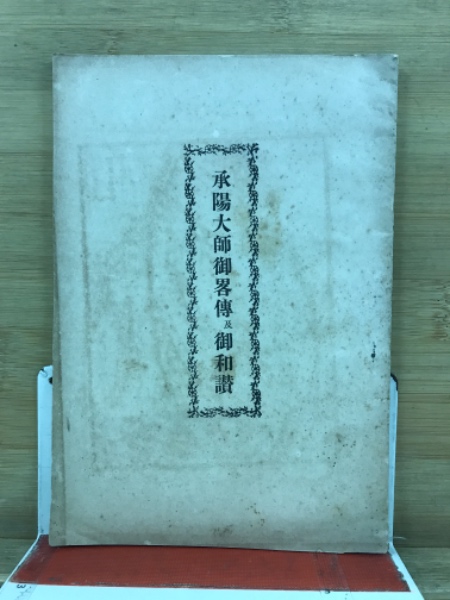 承陽大師御畧傳及御和讃